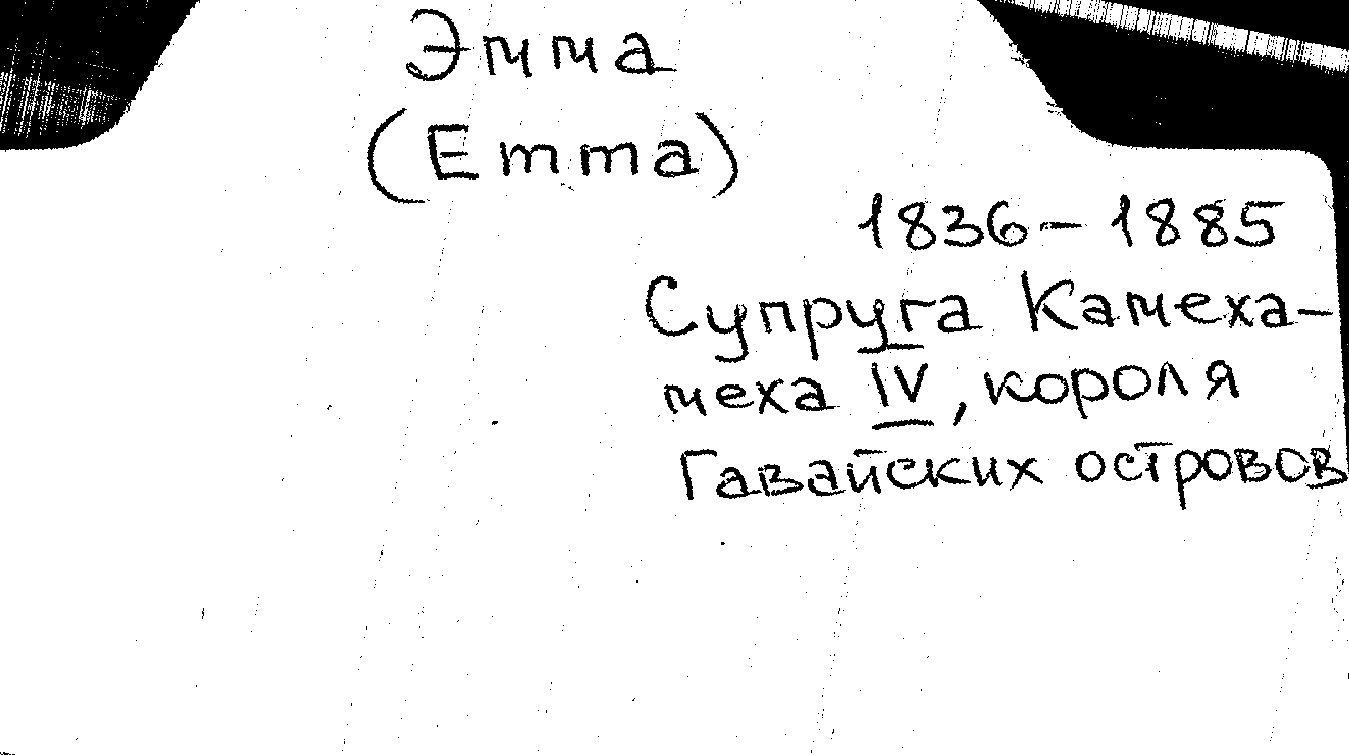 Эмма
(Emma)
1836-1885
Супруга Камеха-
меха IV, короля
Гавайских островов